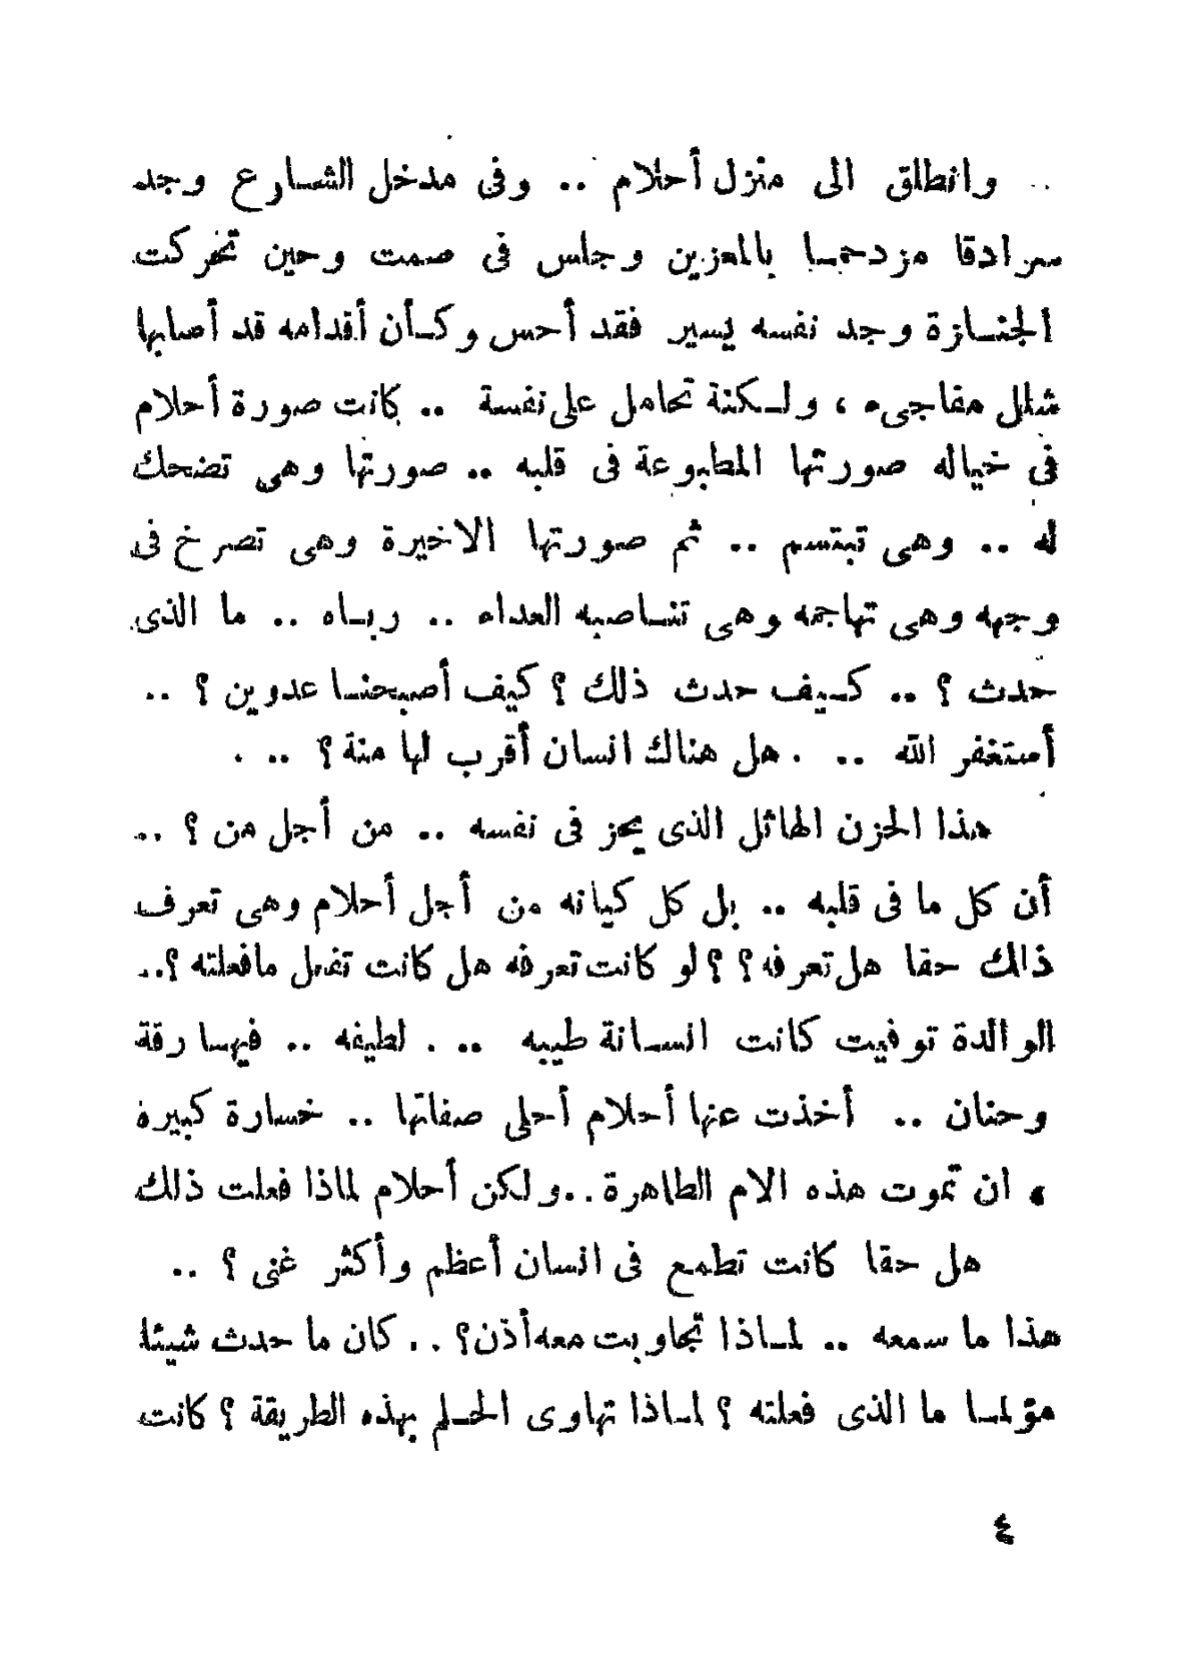 .. وانطلق الى منزل أحلام .. وفى مدخل الشارع وجد
سرادقا مزدحما بالمعزين وجلس فى صمت وحين تحركت
الجنازة وجد نفسه يسير فقد أحس وكأن أقدامه قد أصابها
شلل مفاجىء ، ولكنة تحامل على نفسة .. كانت صورة أحلام
فى خياله صورتها المطبوعة فى قلبه .. صورتها وهى تضحك
له .. وهى تبتسم .. ثم صورتها الاخيرة وهى تصرخ فى
وجهه وهى تهاجمه وهى تناصبه العداء .. رباه .. ما الذى
حدث ؟ .. كيف حدث ذلك ؟ كيف أصبحنا عدوين ؟ ..
أستغفر الله .. . هل هناك انسان أقرب لها منة ؟ .. .
هذا الحزن الهائل الذى يحز فى نفسه .. من أجل من ؟ ..
أن كل ما فى قلبه .. بل كل كيانه من أجل أحلام وهى تعرف
ذلك حقا هل تعرفه ؟ ؟ لو كانت تعرفه هل كانت تفعل مافعلته ؟..
الوالدة توفيت كانت انسانة طيبه .. . لطيفه .. فيها رقة
وحنان .. أخذت عنها أحلام أحلى صفاتها .. خسارة كبيرة
، ان تموت هذه الام الطاهرة ..ولكن أحلام لماذا فعلت ذلك
هل حقا كانت تطمع فى انسان أعظم وأكثر غنى ؟ ..
هذا ما سمعه .. لماذا تجاوبت معه أذن؟ .. كان ما حدث شيئا
مؤلما ما الذى فعلته ؟ لماذا تهاوى الحلم بهذه الطريقة ؟ كانت
٤